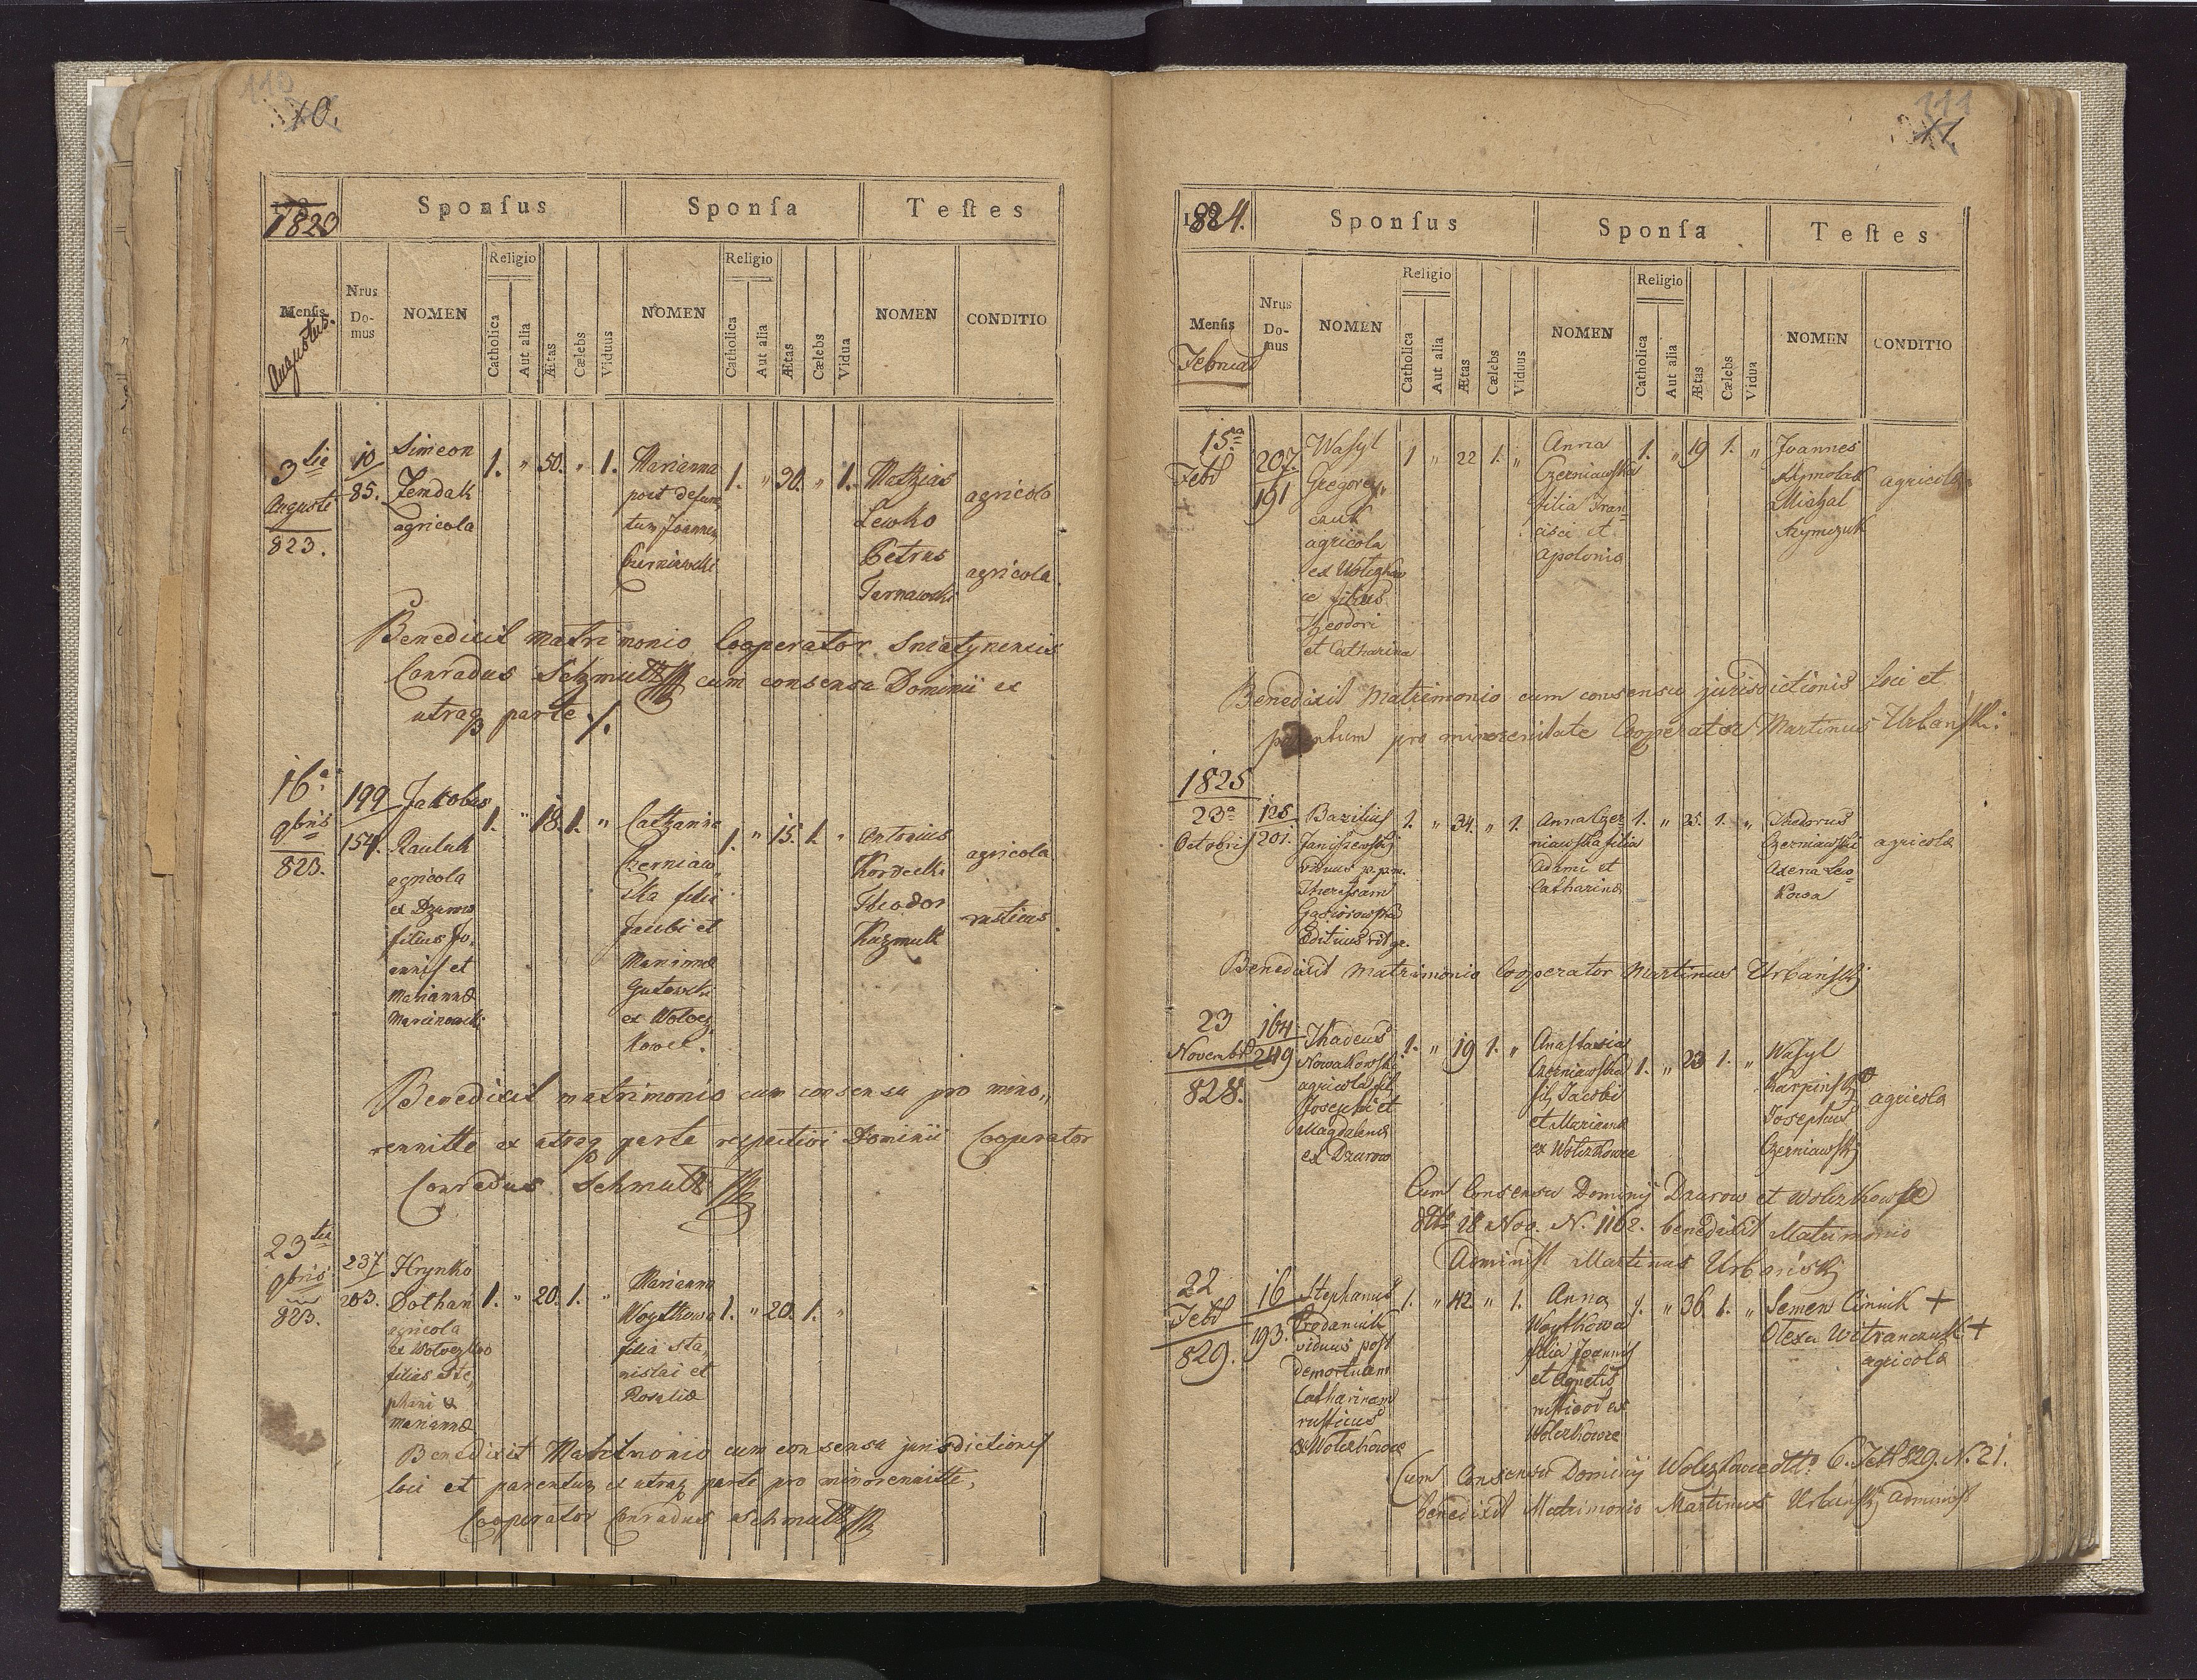 110
10.
1823
Sponſus
Sponſa
Teſtes
Menſis
Augustus.
Nrus
Do-
mus
NOMEN
Religio
Catholica
Aut alia
Ætas
Cælebs
Viduus
NOMEN
Religio
Catholica
Aut alia
Ætas
Cælebs
Vidua
NOMEN
CONDITIO
3tia
Auguste
823.
10
85.
Simeon
Zendak
agricola
1. " 50. " 1.
Marianna
post defunc
tum Joannem
Czerniawski
1. " 30. " 1.
Mathias
Lewko
agricola
Petrus
Tarnawski
agricola
Benedixit matrimonio Cooperator Sniatynensis
Conradus Schmutz cum consensu Dominii ex
utraq parte
16a
9bris
823.
199
154.
Jakobus
Rauluk
agricola
ex Dzurow
filius Jo,
annis et
Mariannæ
Marcinowski
1. " 18. 1. "
Catharina
Czerniaw
ska filia
Jacobi et
Mariannæ
Gutowski
ex Wolcz
kowce.
1. " 15. 1. "
Antonius
Kordecki
agricola
Theodor
Kuzmuk
rusticus
Benedixit matrimonio cum consensu pro mino,,
rennitte ex utraq parte respectivi Dominii Cooperator
Conradus Schmutz
23tia
9bris
823.
237
203.
Hrynko
Dothan
agricola
ex Wolczkow
filius Ste,
phani &
Mariannæ
1. " 20. 1. "
Marianna
Woytkowa
filia Sta,
nislai et
Rosaliæ
1. " 20. 1. "
Benedixit Matrimonio cum consensu jurisdictionis
loci et parentum ex utraq parte pro minorennitte,
Cooperator Conradus Schmutz
111
11.
1824.
Sponſus
Sponſa
Teſtes
Menſis
Februar
Nrus
Do-
mus
NOMEN
Religio
Catholica
Aut alia
Ætas
Cælebs
Viduus
NOMEN
Religio
Catholica
Aut alia
Ætas
Cælebs
Vidua
NOMEN
CONDITIO
15a
Febr
207.
191
Wasyl
Gregorey,,
czuk
agricola
filius
Theodori
et Catharina
1 " 22 1. "
Anna
Czerniawska
filia Fran=
cisci et
Apolonia
1. " 19 1. "
Joannes
Michal
Szymczuk
agricola
Benedixit Matrimonio cum consensu jurisdictionis loci et
parentum pro minorenitate Cooperator Martinus Urbański.
1825
23a
Octobris
125.
201.
Bazilius
Janiszewski
viduus p. p. m.
Theressam
Gasiorowska
1. " 34. " 1.
Anna Czer
niawska filia
Adami et
Catharinæ
1. " 25. 1. "
Thedorus
Czerniawski
Axena Lew=
kowa
agricolæ
Benedixit matrimonio Cooperator Martinus Urbański
23
Novembr
828.
164
249
Thadeus
Nowakowski
agricola fil
Josephi et
Magdalenæ
ex Dzurow
1. " 19 1. "
Anastasia
Czerniawska
fil Jacobi
et Mariannæ
ex Wolczkowce
1. " 23 1. "
Wasyl
Karpinski
Josephus
Czerniawski
agricola
Cum Consensu Dominij Dzurow et Wolczkowce
ddto 18 Nov. N. 1162. benedixit Matrimonio
Administ Martinus Urbański
22
Febr
829.
16
193.
Stephanus
Prodaniuk
viduus post
demortuam
Catharinam
rusticus
ex Wolczkowce
1. " 42. " 1.
Anna
Woytkowa
filia Joannis
et Agnetis
rusticor ex
Wolczkowce
1. " 36 1. "
Semen Ciniuk +
Olexa Witranczuk +
agricolæ
Cum Consensu Dominij Wolczkowce ddto 6. Febr 829. N. 21.
benedixit Matrimonio Martinus Urbański administ